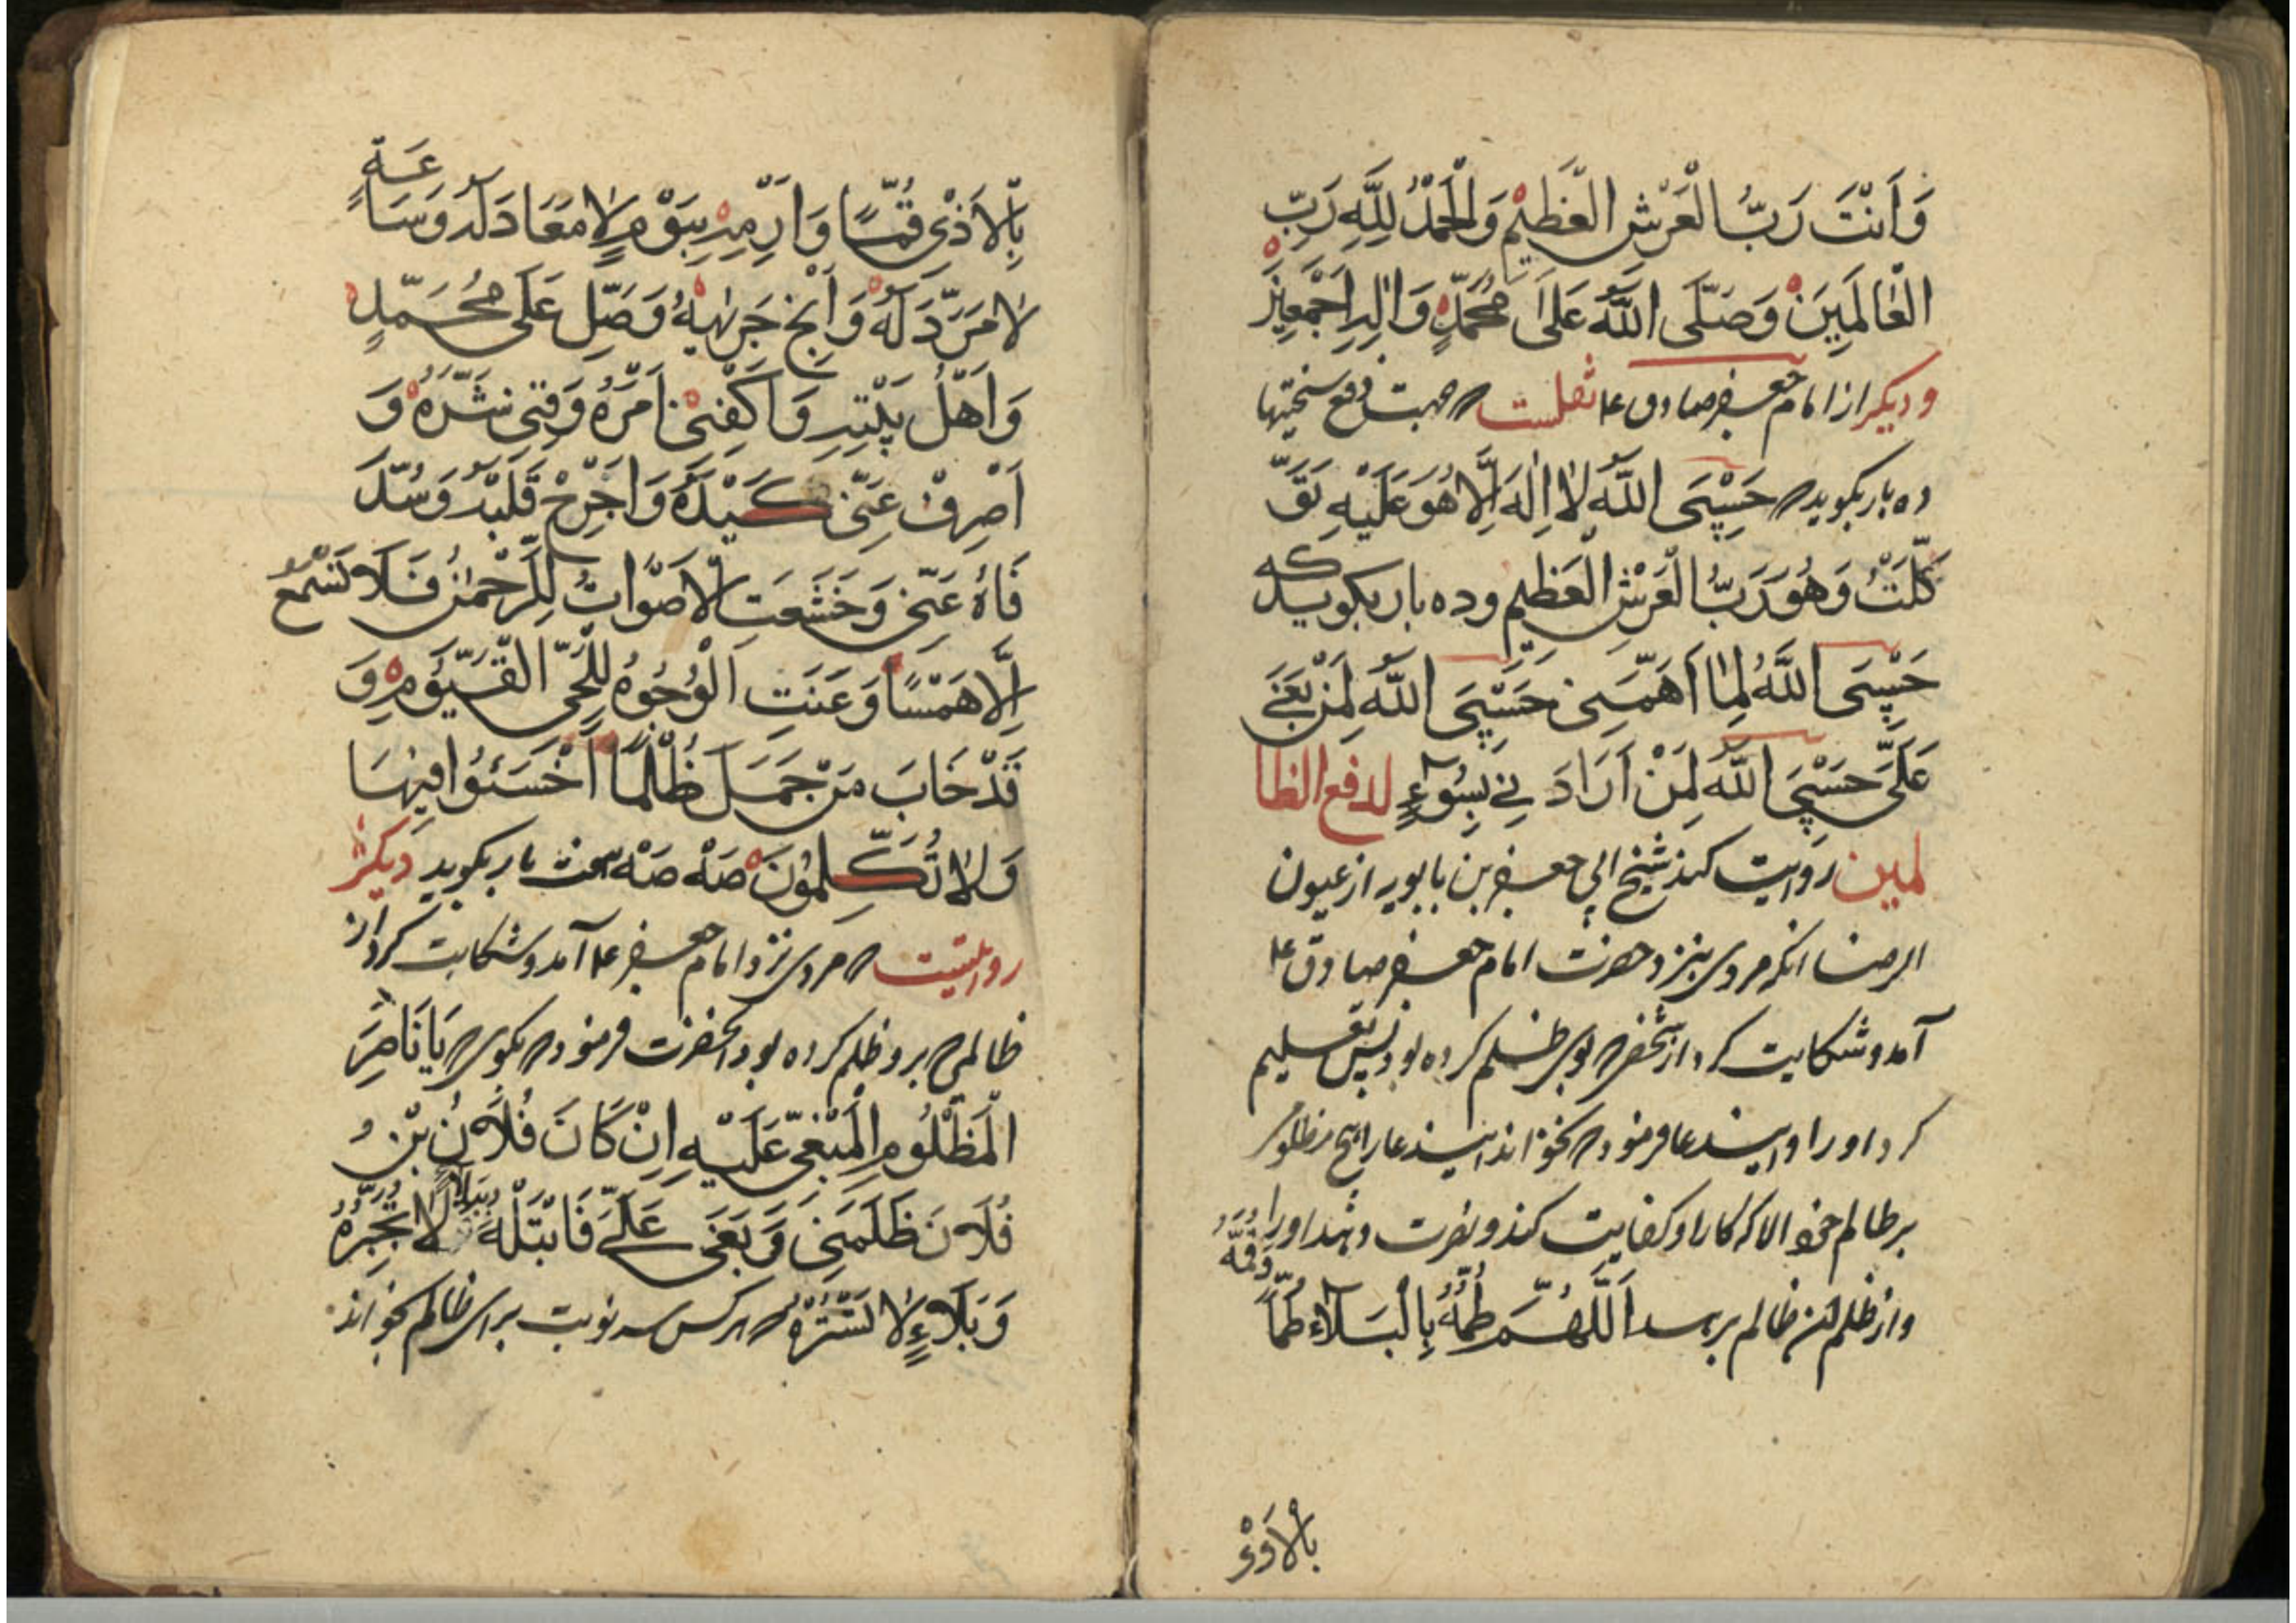 وَاَنْتَ رَبُّ الْعَرْشِ الْعَظِيْمِ وَالْحَمْدُ لِلّٰهِ رَبِّ
الْعٰالَمِيَنْ وَصَلَّى اللّٰهُ عَلَىٰ مُحَمَّدٍ وَاٰلِهِ اَجْمَعِيْنَ
و دیکر از امام جعفر صادق ع نقلست که جهت دفع سختیها
ده بار بکوید که حَسْبِىَ اللّٰهُ لاٰ اِلٰهَ اِلَّا هُوَ عَلَيْهِ تَوَ
كَّلْتُ وَهُوَ رَبُّ الْعَرْشِ الْعَظِيْمِ وده بار بکوید که
حَسْبِىَ اللّٰهُ لِمٰا اَهَمَّنِى حَسْبِىَ اللّٰهُ لِمَنْ بَغىٰ
عَلَىَّ حَسْبِىَ اللّٰهُ لِمَنْ اَرَادَ نِي بِسُوٓءٍ لدفع الظا
لمین روایت کند شیخ ابی جعفر بن بابویه از عیون
الرضا انکه مردی بنزد حضرت امام جعفر صادق ع
آمد و شکایت کرد از شخصی که بوی ظلم کرده بود پس تعلیم
کرد او را و ایندعا فرمود که بخواند ایندعا را هیچ مظلوم
بر ظالم نخواند الا که کار او کفایت کند و نصرت دهد او را
و از ظلم ان ظالم برهد اَللّٰهُمَّ طُمَّهُ بِالْبَلَآءِ طَمًّا وَقُمَّهُ
بِالْاَذْىٰ
بِالْاَذْىٰ قُمًّا وَارْمِهِ بِيَوْمٍ لاٰ مَعَادَ لَهُ وَسَاعَةٍ
لاٰ مَرَدَّ لَهُ وَاَبِحْ حَرِيْمَهُ وَصَلِّ عَلَى مُحَمَّدٍ
وَاَهْلِ بَيْتِهِ وَاكْفِنِىْ اَمْرَهُ وَقِنِى شَرَّهُ وَ
اَصْرِفْ عَنّى كَيْدَهُ وَاجْرَحْ قَلْبَهُ وَسُدَّ
فَاهُ عَنّى وَخَشَعَتِ الْاَصْوٰاتُ لِلرَّحْمٰنِ فَلاَ تَسْمَعُ
اِلَّا هَمْسًا وَعَنَتِ الْوُجُوهُ لِلْحَىِّ الْقَيُّوْمِ وَ
قَدْ خَابَ مَنْ حَمَلَ ظُلْمًا اَخْسَئُوا فِيهٰا
وَلاٰ تُكَلِّمُوْنَ صَهْ صَهْ هفت بار بکوید دیکر
روایتست که مردی نزد امام جعفر ع آمد و شکایت کرد از
ظالمی که برو ظلم کرده بود انحضرت فرمود که بکوی که يَا نَاصِرَ
الْمَظْلُومِ الْمَبْغِيّ عَلَيْهِ اِنْ كَانَ فُلاَنُ بْنُ
فُلاَنَ ظَلَمَنِى وَبَغىٰ عَلَىَّ فَابْتَلِهُ بِبَلَآءٍ لاٰ تَجْبُرُهُ
وَبَلاَءٍ لاٰ تَسْتُرُهُ که هرکس سه نوبت برای ظالم بخواند